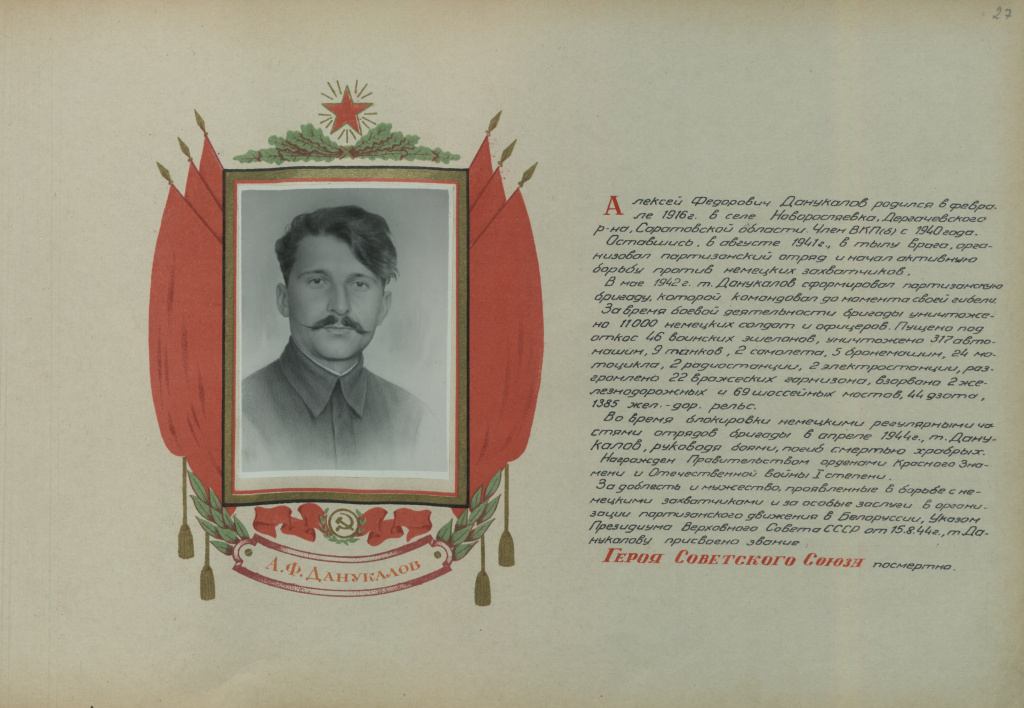 27
Алексей Федорович Данукалов родился в февра-
ле 1916г. в селе Новорасляевка, Дергачевского
р-на, Саратовской области. Член ВКП(б) с 1940 года.
Оставшись, в августе 1941г., в тылу врага, орга-
низовал партизанский отряд и начал активную
борьбу против немецких захватчиков.
В мае 1942 г. т. Данукалов сформировал партизанскую
бригаду, которой командовал до момента своей гибели.
За время боевой деятельности бригады уничтоже-
но 11000 немецких солдат и офицеров. Пущено под
откос 46 воинских эшелонов, уничтожено 317 авто-
машин, 9 танков, 2 самолета, 5 бронемашин, 24 мо-
тоцикла, 2 радиостанции, 2 электростанции, раз-
громлено 22 вражеских гарнизона, взорвано 2 же-
лезнодорожных и 69 шоссейных мостов, 44 дзота,
1385 жел.-дор. рельс.
Во время блокировки немецкими регулярными ча-
стями отрядов бригады в апреле 1944г., т. Дану-
калов, руководя боями, погиб смертью храбрых.
Награжден Правительством орденами Красного Зна-
мени и Отечественной войны I степени.
За доблесть и мужество, проявленные в борьбе с не-
мецкими захватчиками и за особые заслуги в органи-
зации партизанского движения в Белоруссии, Указом
Президиума Верховного Совета СССР от 15.8.44г., т. Да-
нукалову присвоено звание
Героя Советского Союза посмертно.
А.Ф. Данукалов